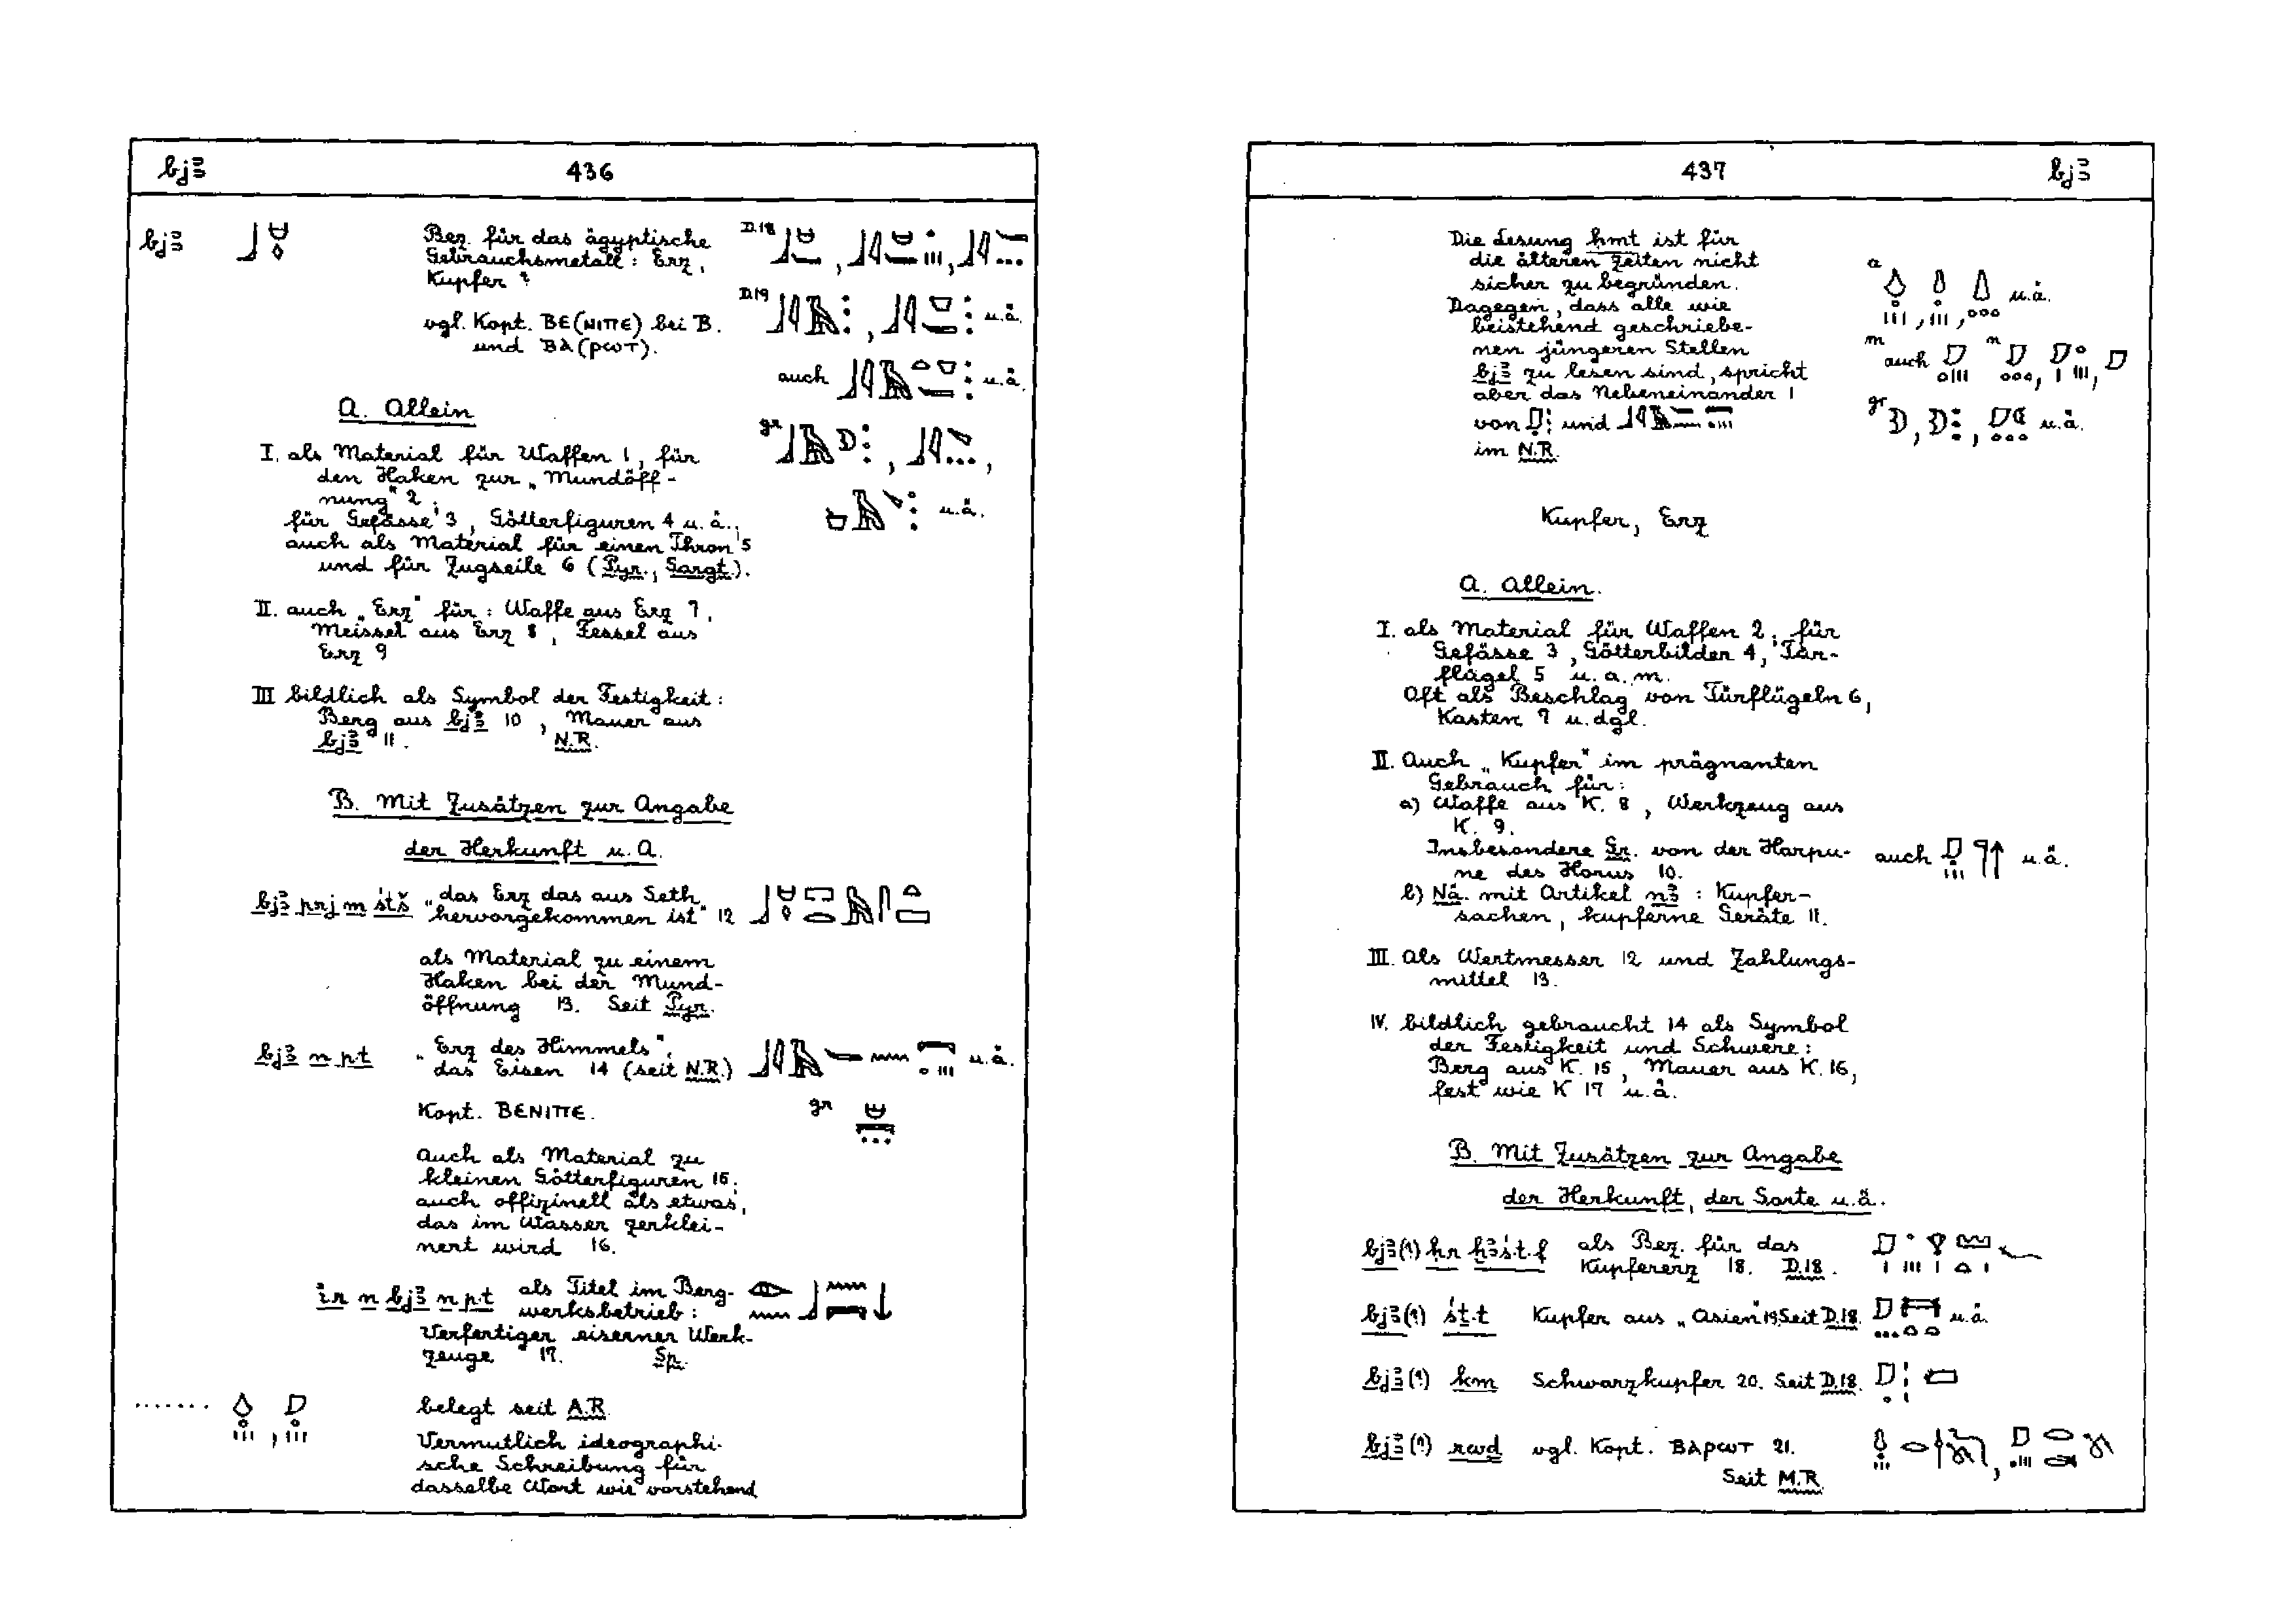 bjꜣ 436
bjꜣ Bez. für das ägyptische
Gebrauchsmetall: Erz,
Kupfer?
D.18
D.19
vgl. Kopt. ⲂⲈ(ⲚⲒⲠⲈ) bei B.
und ⲂⲀ(ⲢⲰⲦ).
u.ä.
auch u.ä.
gr
u.ä.
A. Allein
I. als Material für Waffen 1, für
den Haken zur „Mundöff-
nung" 2;
für Gefässe 3, Götterfiguren 4 u.ä.;
auch als Material für einen Thron 5
und für Zugseile 6 (Pyr., Sargt.).
II. auch „Erz" für: Waffe aus Erz 7,
Meissel aus Erz 8, Fessel aus
Erz 9
III bildlich als Symbol der Festigkeit:
Berg aus bjꜣ 10, Mauer aus
bjꜣ 11. N.R.
B. Mit Zusätzen zur Angabe
der Herkunft u.A.
bjꜣ prj m śtš „das Erz das aus Seth
hervorgekommen ist" 12
als Material zu einem
Haken bei der Mund-
öffnung 13. Seit Pyr.
bjꜣ n pt „Erz des Himmels",
das Eisen 14 (seit N.R.) u.ä.
Kopt. ⲂⲈⲚⲒⲠⲈ. gr
Auch als Material zu
kleinen Götterfiguren 15;
auch offizinell als etwas,
das im Wasser zerklei-
nert wird 16.
ir n bjꜣ n pt als Titel im Berg-
werksbetrieb:
Verfertiger eiserner Werk-
zeuge 17. Sp.
....... belegt seit A.R.
Vermutlich ideographi-
sche Schreibung für
dasselbe Wort wie vorstehend
437 bjꜣ
Die Lesung ḥmt ist für
die älteren Zeiten nicht
sicher zu begründen.
Dagegen, dass alle wie
beistehend geschriebe-
nen jüngeren Stellen
bjꜣ zu lesen sind, spricht
aber das Nebeneinander 1
von und
im N.R.
a u.ä.
m auch n
gr u.ä.
Kupfer, Erz
A. Allein.
I. als Material für Waffen 2, für
Gefässe 3, Götterbilder 4, Tür-
flügel 5 u.a.m.
Oft als Beschlag von Türflügeln 6,
Kasten 7 u.dgl.
II. Auch „Kupfer" im prägnanten
Gebrauch für:
a) Waffe aus K. 8, Werkzeug aus
K. 9.
Insbesondere Gr. von der Harpu-
ne des Horus 10. auch u.ä.
b) Nä. mit Artikel nꜣ: Kupfer-
sachen, kupferne Geräte 11.
III. Als Wertmesser 12 und Zahlungs-
mittel 13.
IV. bildlich gebraucht 14 als Symbol
der Festigkeit und Schwere:
Berg aus K. 15, Mauer aus K. 16,
fest wie K 17 u.ä.
B. Mit Zusätzen zur Angabe
der Herkunft, der Sorte u.ä.
bjꜣ(?) ḥr ḫꜣś.t.f als Bez. für das
Kupfererz 18. D.18.
bjꜣ(?) śṯ.t Kupfer aus „Asien" 19. Seit D.18. u.ä.
bjꜣ(?) km Schwarzkupfer 20. Seit D.18.
bjꜣ(?) rwḏ vgl. Kopt. ⲂⲀⲢⲰⲦ 21.
Seit M.R.